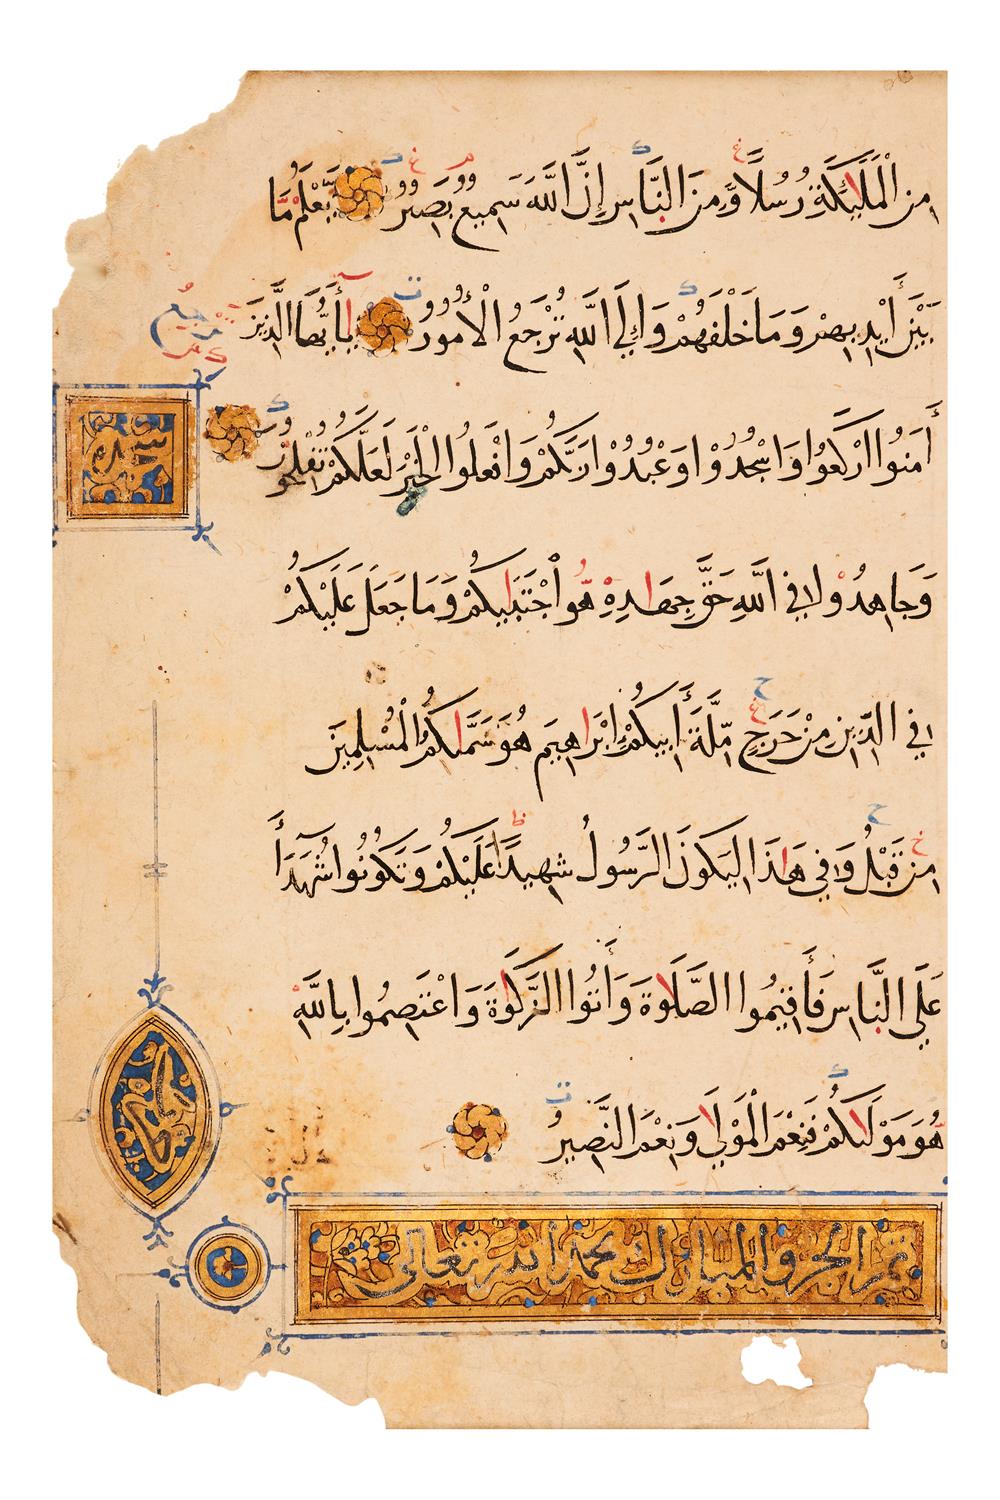 مِنَ الْمَلَـٰٓئِكَةِ رُسُلًا وَّمِنَ النَّاسِ إِنَّ اللَّهَ سَمِيعٌ بَصِيرٌ يَعْلَمُ مَا
بَيْنَ أَيْدِيهِمْ وَمَا خَلْفَهُمْ وَإِلَى اللَّهِ تُرْجَعُ الْأُمُورُ يَـٰٓأَيُّهَا الَّذِينَ
أَمَنُوا ارْكَعُوا وَاسْجُدُوْا وَعْبُدُوْا رَبَّكُمْ وَافْعَلُوا الْخَيْرَ لَعَلَّكُمْ تُفْلِحُونَ
سجدة
وَجَاهِدُوْا فِي اللَّهِ حَقَّ جِهَادِهِ هُوَ اجْتَبَـٰيكُمْ وَمَا جَعَلَ عَلَيْكُمْ
فِي الدِّينِ مِنْ حَرَجٍ مِّلَّةَ أَبِيكُمْ إِبْرَاهِيمَ هُوَ سَمَّـٰكُمُ الْمُسْلِمِينَ
مِنْ قَبْلُ وَفِي هَـٰذَا لِيَكُونَ الرَّسُولُ شَهِيدًا عَلَيْكُمْ وَتَكُونُوا شُهَدَآءَ
عَلَى النَّاسِ فَأَقِيمُوا الصَّلَوٰةَ وَأَتُوا الزَّكَوٰةَ وَاعْتَصِمُوا بِاللَّهِ
هُوَ مَوْلَـٰيكُمْ فَنِعْمَ الْمَوْلَى وَنِعْمَ النَّصِيرُ
تم الجزو المبارك بحمد الله تعالى